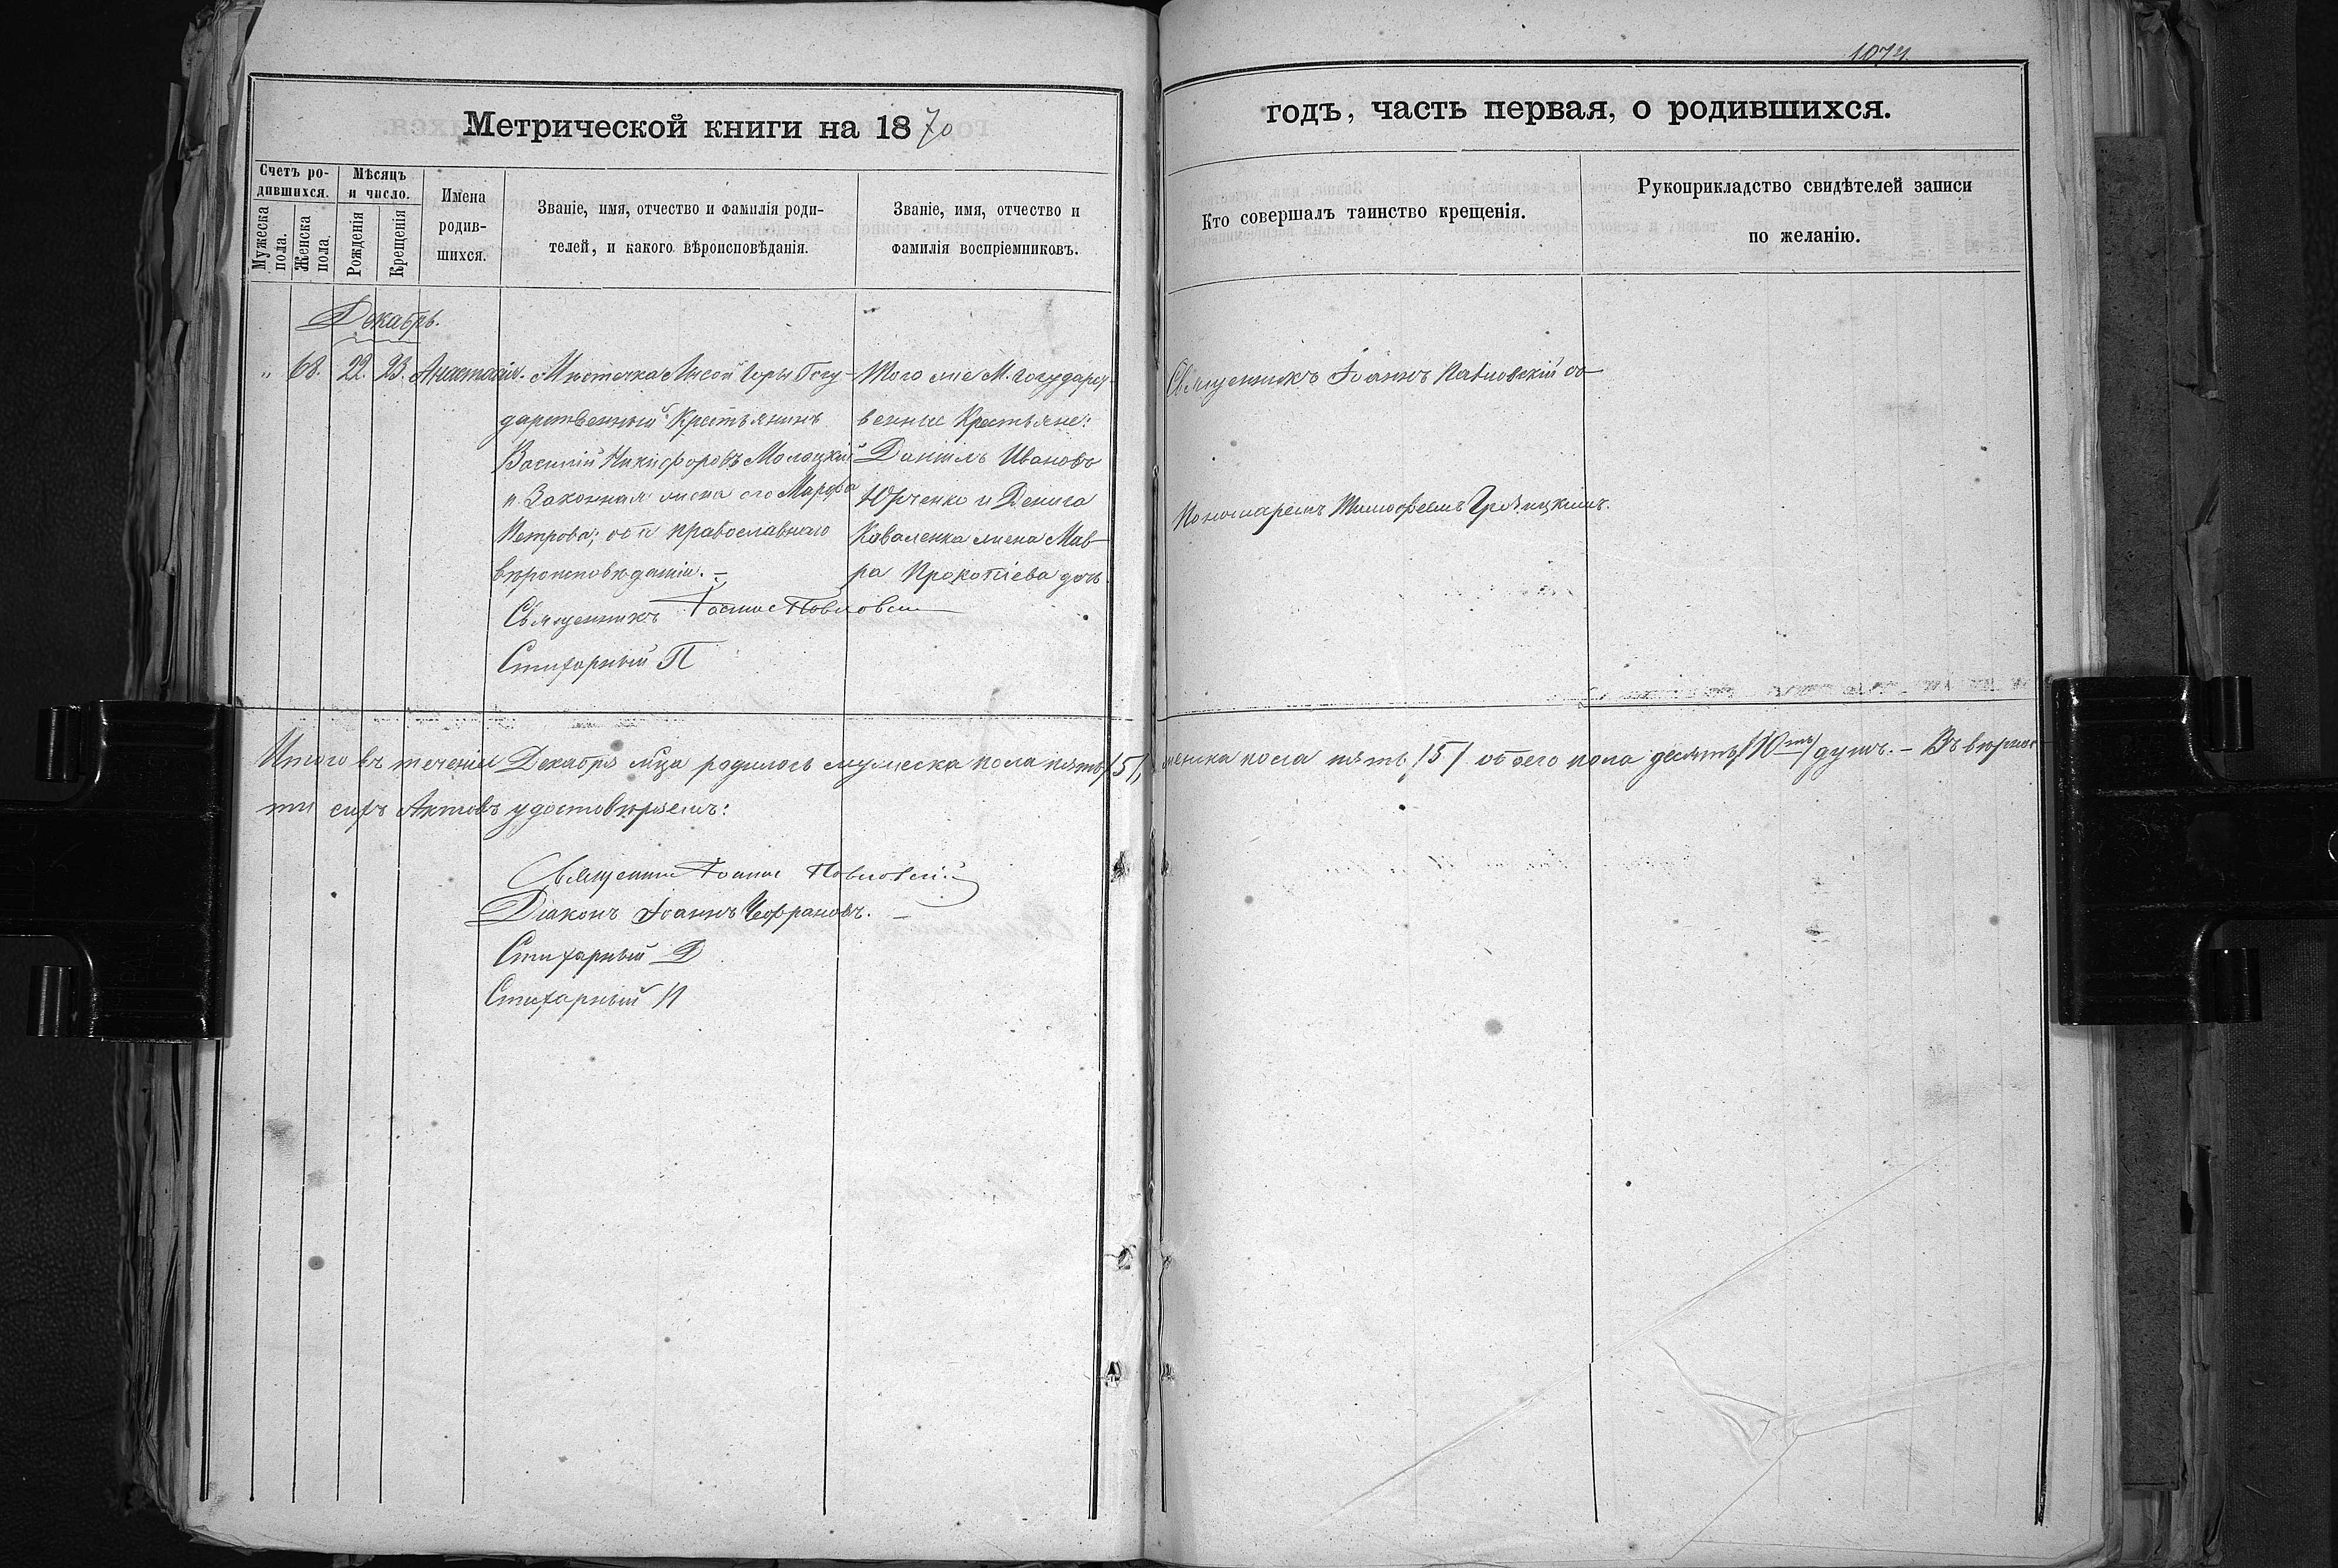 1074.
Метрической книги на 1870
годъ, часть первая, о родившихся.
Счетъ ро-
дившихся.
Мужеска
пола.
Женска
пола.
Мѣсяцъ
и число.
Рожденія
Крещенія
Имена
родив-
шихся.
Званіе, имя, отчество и фамилія роди-
телей, и какого вѣроисповѣданія.
Званіе, имя, отчество и
фамилія воспріемниковъ.
Кто совершалъ таинство крещенія.
Рукоприкладство свидѣтелей записи
по желанію.
Декабрь.
" 68. 22. 23. Анастасія.
Мѣстечка Лысой Горы Госу-
дарственный Крестьянинъ
Василій Никифоровъ
и Законная жена его Марфа
Петрова; оба православнаго
вѣроисповѣданія.
Священникъ Іоаннъ Павловскій
Стихарный П
Того же М. государст-
венные Крестьяне:
Даніилъ Ивановъ
Юрченко и Дениса
Коваленка жена Мав-
ра Прокопіева дочь.
Священникъ Іоаннъ Павловскій со
Пономаремъ Тимофеемъ
Итого въ теченіи Декабря м-ца родилось мужеска пола пять /5/, женска пола пять /5/ обоего пола десять /10-ть/ душъ. - Въ вѣрнос-
ти сихъ Актовъ удостовѣряемъ:
Священникъ Іоаннъ Павловскій
Діаконъ Іоаннъ
Стихарный Д
Стихарный П